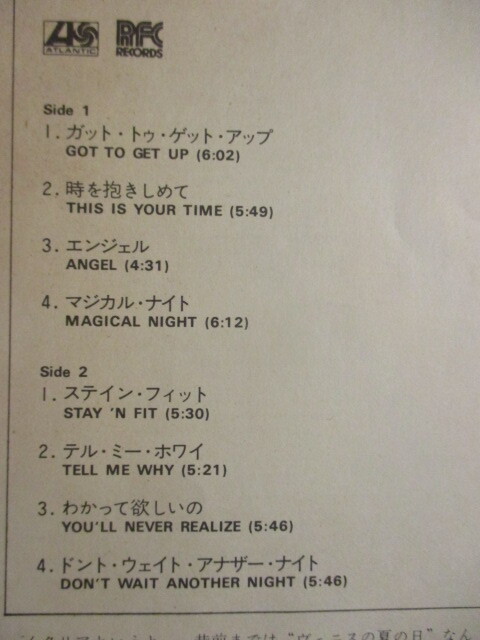 ATLANTIC RFC RECORDS
Side 1
1. ガット・トゥ・ゲット・アップ
GOT TO GET UP (6:02)
2. 時を抱きしめて
THIS IS YOUR TIME (5:49)
3. エンジェル
ANGEL (4:31)
4. マジカル・ナイト
MAGICAL NIGHT (6:12)
Side 2
1. ステイン・フィット
STAY 'N FIT (5:30)
2. テル・ミー・ホワイ
TELL ME WHY (5:21)
3. わかって欲しいの
YOU'LL NEVER REALIZE (5:46)
4. ドント・ウェイト・アナザー・ナイト
DON'T WAIT ANOTHER NIGHT (5:46)
昔前までは “ヴェニスの夏の日” なん